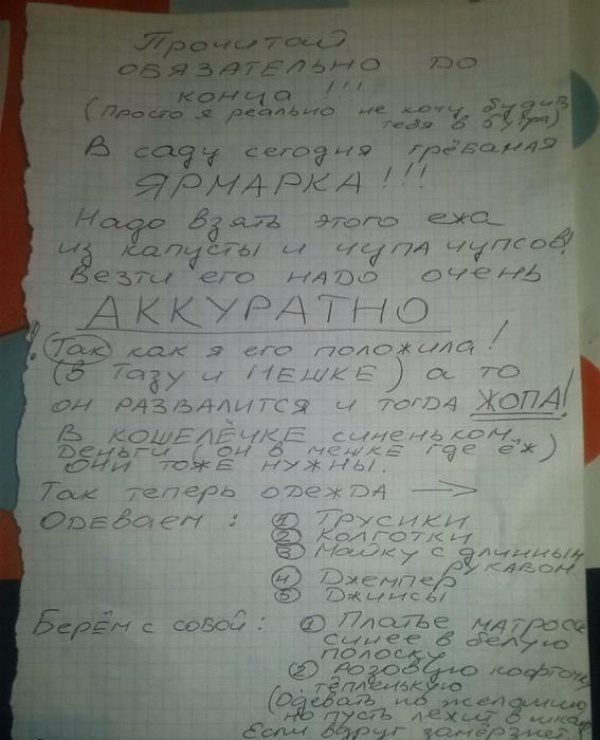 Прочитай
ОБЯЗАТЕЛЬНО ДО
конца !!!
(Просто я реально не хочу будить
тебя в 6 утра)
В саду сегодня грёбаная
ЯРМАРКА!!!
Надо взять этого ежа
из капусты и чупа чупсов!
Везти его НАДО очень
АККУРАТНО
! Так как я его положила!
(В Тазу и МЕШКЕ) а то
он РАЗВАЛИТСЯ и тогда ЖОПА!
В КОШЕЛЁЧКЕ синеньком
Деньги (он в мешке где ёж)
ОНИ ТОЖЕ НУЖНЫ.
Так теперь одежда →
Одеваем : ① Трусики
② Колготки
③ Майку с длинным
рукавом
④ Джемпер
⑤ Джинсы
Берём с собой: ① Платье матроса
синее в белую
полоску
② Розовую кофточку
тёпленькую
(Одевать по желанию
но пусть лежит в шкафу
Если вдруг замёрзнет)